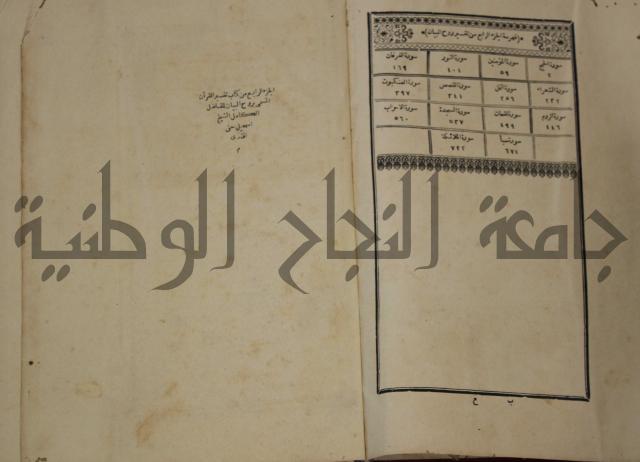 (فهرسة الجزء الرابع من تفسير روح البيان)
سورة الحج سورة المؤمنين سورة النور سورة الفرقان
٢ ٥٩ ١٠٤ ١٦٩
سورة الشعراء سورة النمل سورة القصص سورة العنكبوت
٢٣٢ ٢٥٦ ٣٤١ ٣٩٧
سورة الروم سورة لقمان سورة السجدة سورة الاحزاب
٤٤٦ ٤٩٩ ٥٣٧ ٥٦٠
سورة سبا سورة الملائكة
٦٧١ ٧٢٢
ب ح
الجزء الرابع من كتاب تفسير القرآن
المسمى بروح البيان للفاضل
الكامل الشيخ
اسمعيل حقى
افندى
م
جامعة النجاح الوطنية